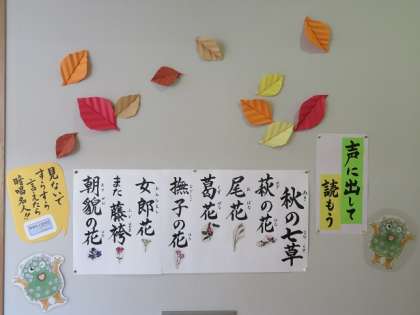 声に出して
読もう
秋の七草
萩の花
尾花
葛花
撫子の花
女郎花
また藤袴
朝貌の花
見ないで
すらすら
言えたら
暗唱名人!!